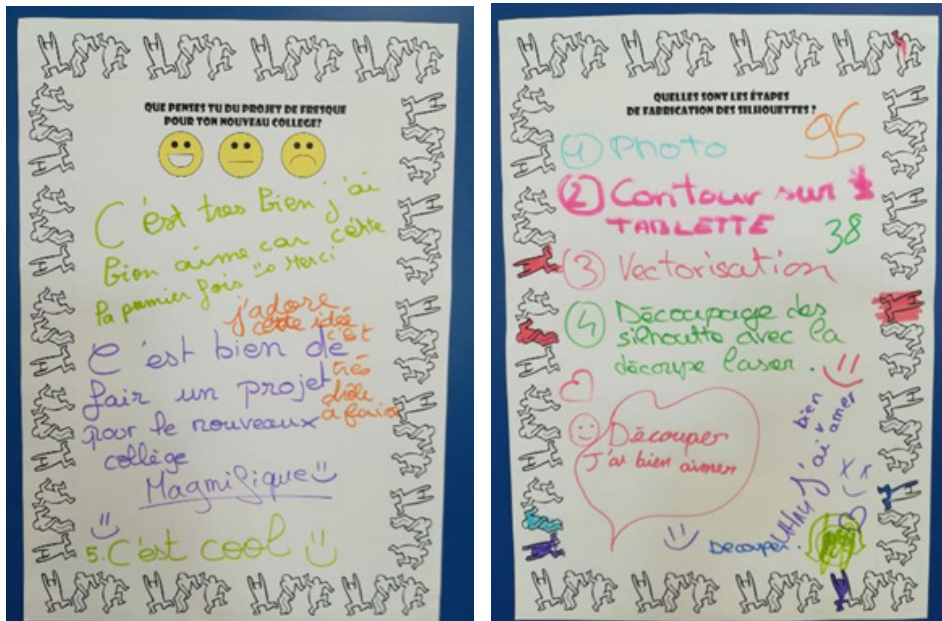 QUE PENSES TU DU PROJET DE FRESQUE
POUR TON NOUVEAU COLLEGE?
C'est tres Bien j'ai
Bien aime car cette
la pamier fois Merci
j'adore
cette idée
c'est
trés
drôle
a faire
C'est bien de
fair un projet
pour le nouveaux
collège
Magnifique
5. C'est cool
QUELLES SONT LES ÉTAPES
DE FABRICATION DES SILHOUETTES ?
95
(1) Photo
(2) Contour sur
TABLETTE
38
(3) Vectorisation
(4) Découpage des
silhoutte avec la
découpe laser.
Découper
J'ai bien aimer
J'ai bien
aimer
Decouper.